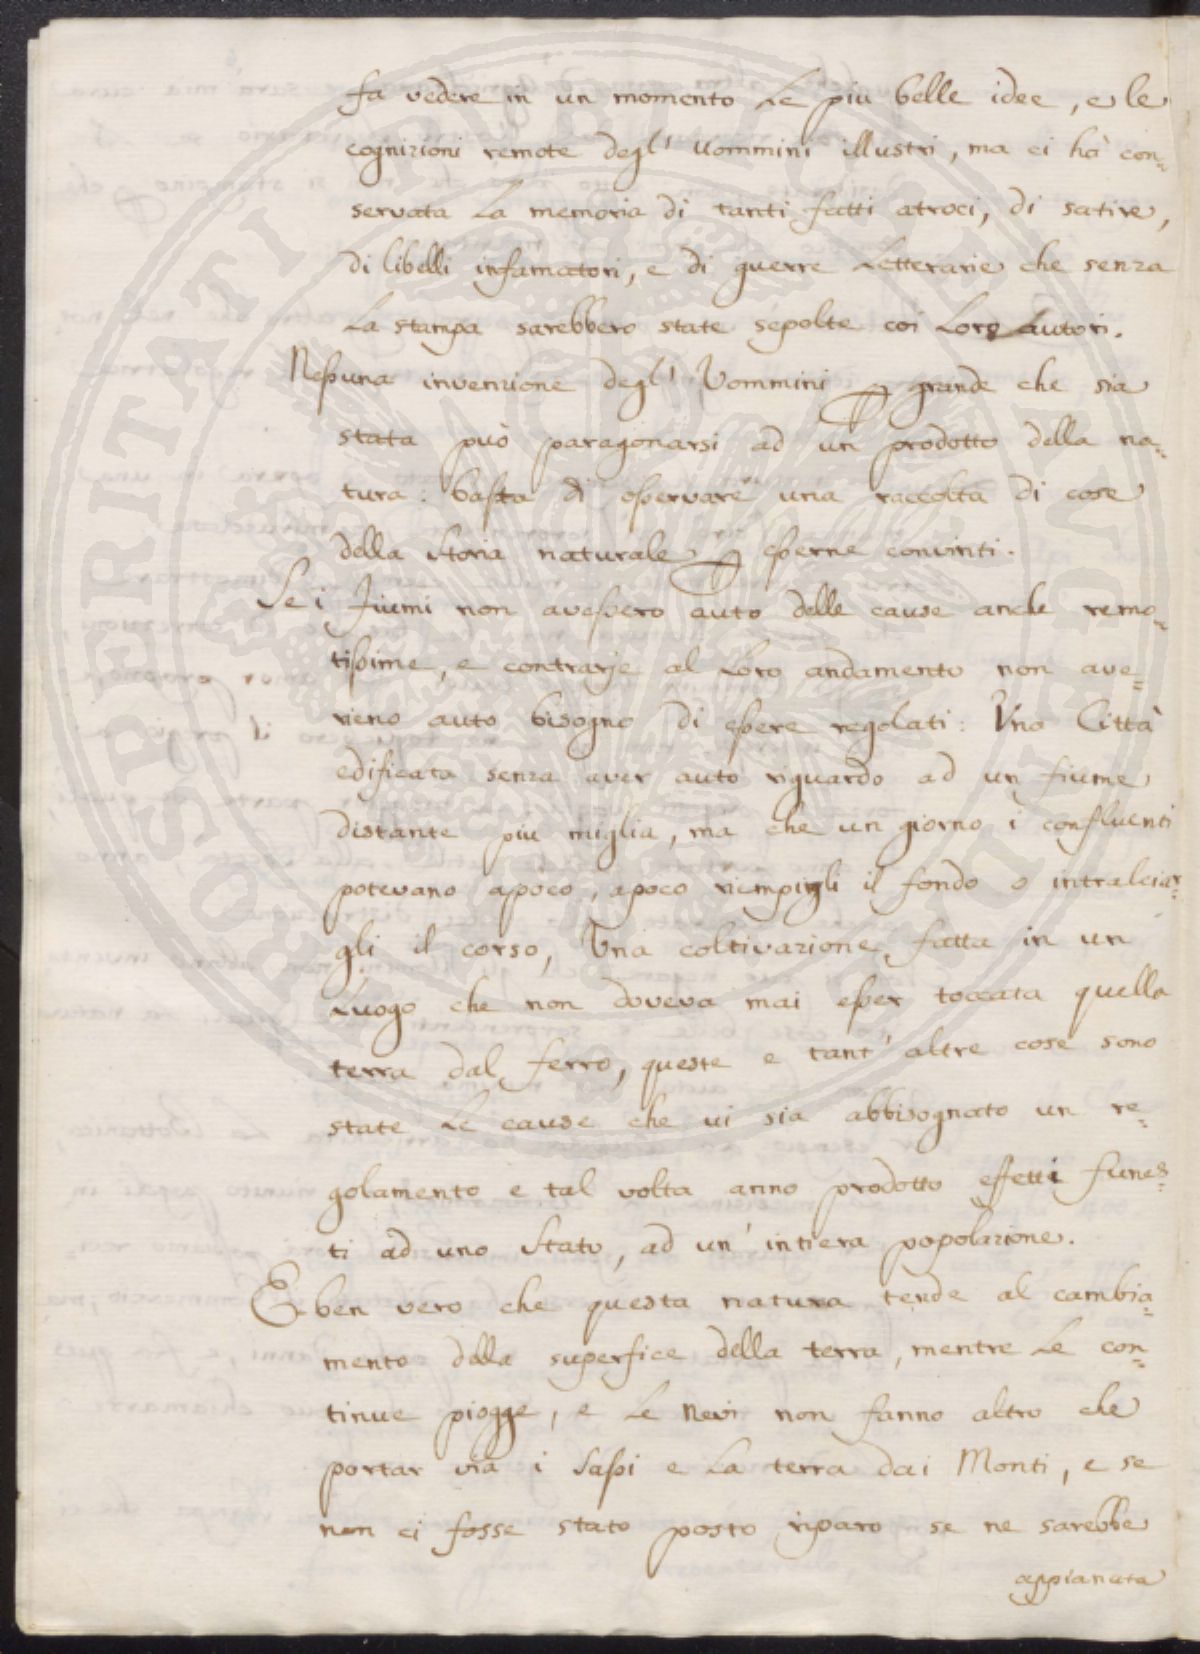 fa vedere in un momento le piu belle idee, e le
cognizioni remote degl' Uommini illustri, ma ci hà con=
servata la memoria di tanti fatti atroci, di satire,
di libelli infamatori, e di guerre Letterarie che senza
la stampa sarebbero state sepolte coi Loro Autori.
Nessuna invenzione degl' Uommini grande che sia
stata può paragonarsi ad un prodotto della na=
tura: basta di osservare una raccolta di cose
della Storia naturale esserne convinti.
Se i Fiumi non avessero auto delle cause anche remo=
tissime, e contrarje al Loro andamento non ave=
rieno auto bisogno di essere regolati: Una Città
edificata senza aver auto riguardo ad un fiume
distante piu miglia, ma che un giorno i confluenti
potevano apoco, apoco riempirgli il fondo o intralciar=
gli il corso, Una coltivazione fatta in un
Luogo che non doveva mai esser toccata quella
terra dal ferro, queste e tant' altre cose sono
state le cause che vi sia abbisognato un re=
golamento e tal volta anno prodotto effetti funes=
ti ad uno Stato, ad un' intiera popolazione.
E ben vero che questa natura tende al cambia=
mento della superfice della terra, mentre le con=
tinue piogge, e le Nevi non fanno altro che
portar via i Sassi e la terra dai Monti, e se
non ci fosse stato posto riparo se ne sarebbe
appianata
PROSPERITATI PUBLICAE